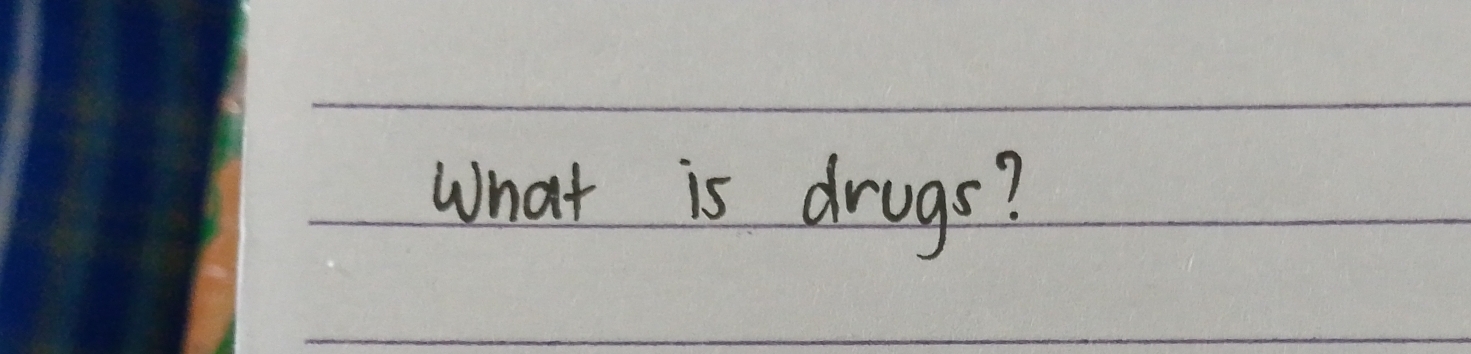 What is drugs?